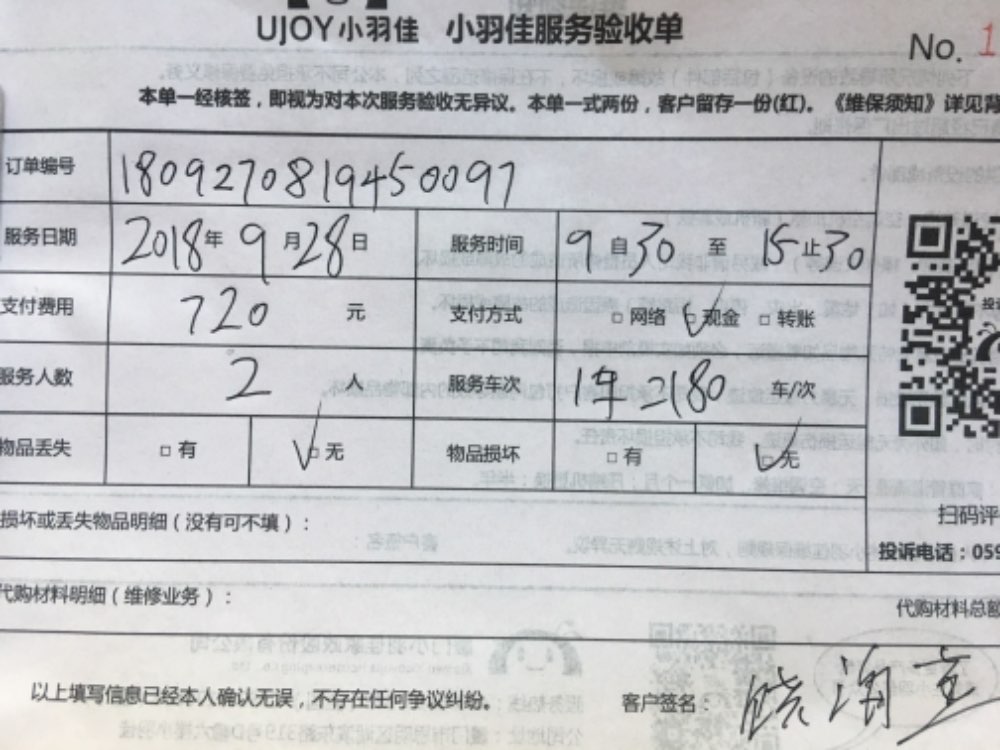 UJOY小羽佳 小羽佳服务验收单
No. 1
本单一经核签，即视为对本次服务验收无异议。本单一式两份，客户留存一份(红)。《维保须知》详见背
订单编号 180927081945009​7
服务日期 2018年9月28日 服务时间 9自30至15止30
支付费用 720 元 支付方式 □网络 ☑现金 □转账
服务人数 2 人 服务车次 车/次
物品丢失 □有 ☑无 物品损坏 □有 ☑无
损坏或丢失物品明细（没有可不填）：
扫码评
投诉电话：059
代购材料明细（维修业务）：
代购材料总额
以上填写信息已经本人确认无误，不存在任何争议纠纷。 客户签名：